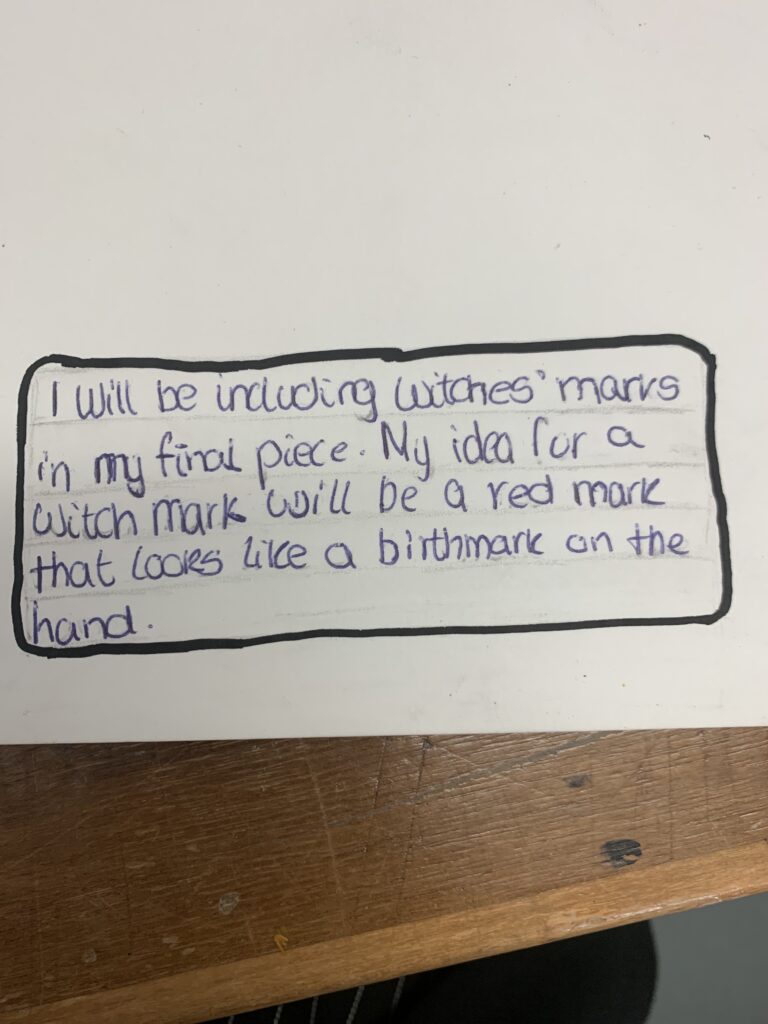 I will be including witches' marks
in my final piece. My idea for a
witch mark will be a red mark
that looks like a birthmark on the
hand.